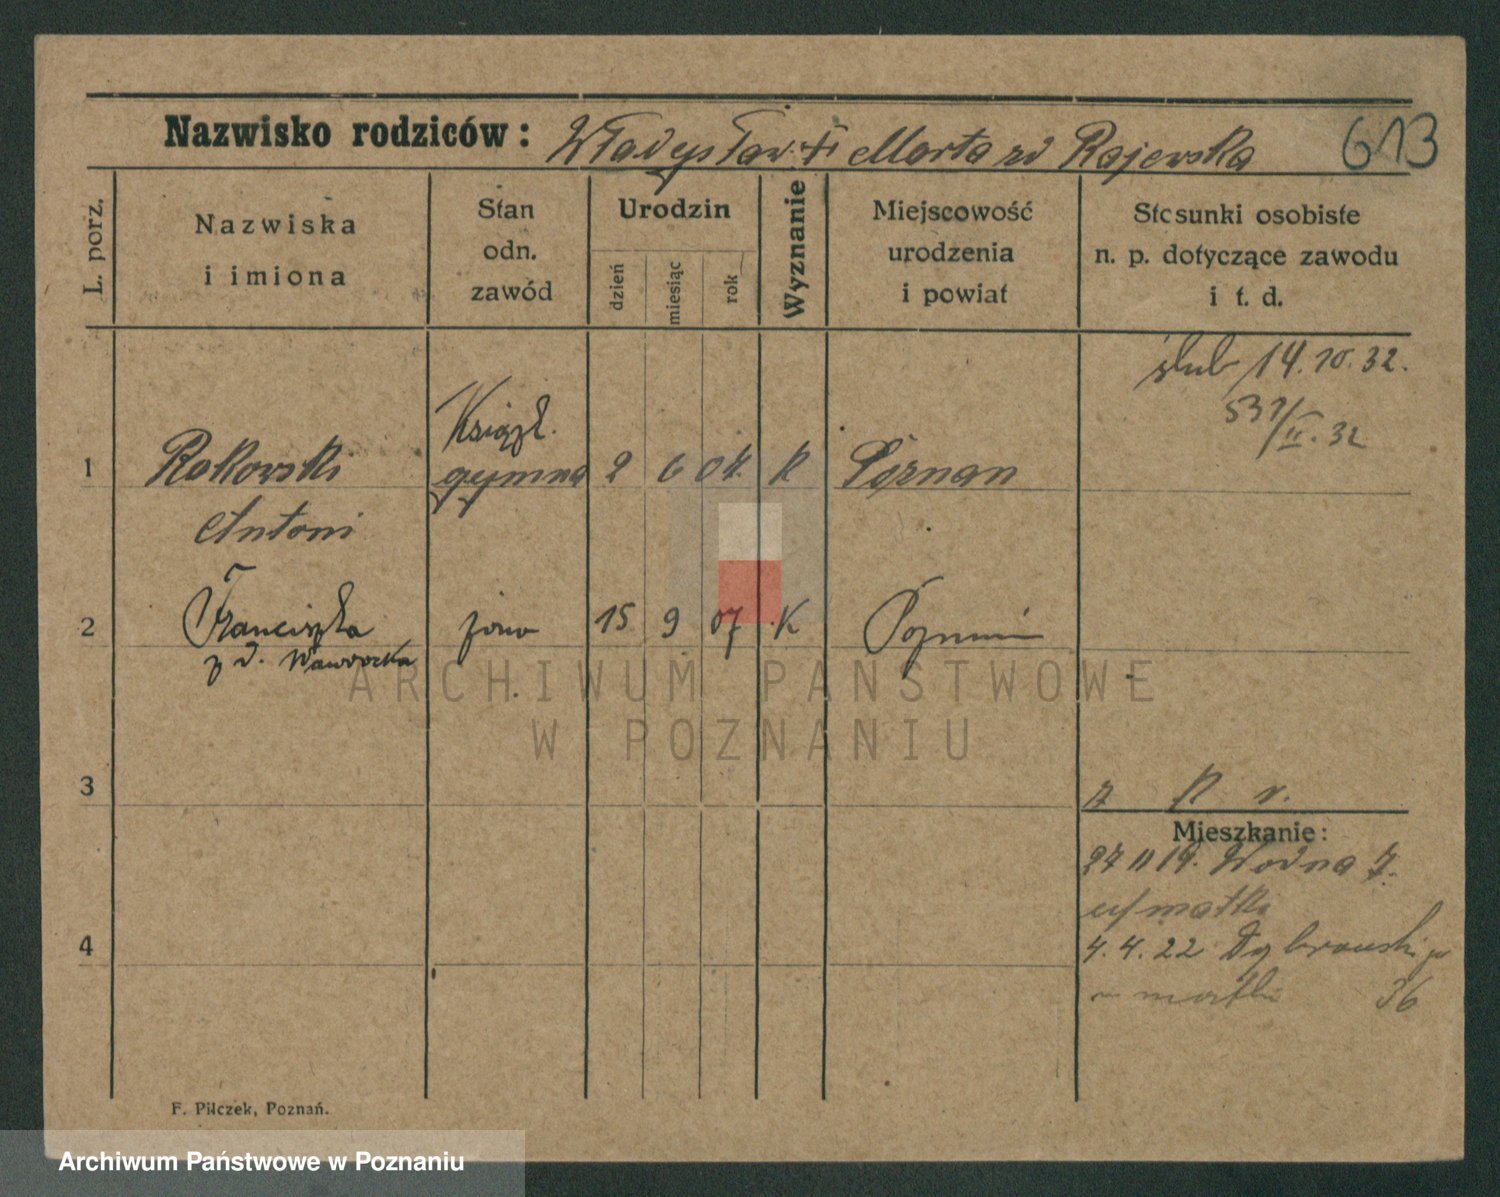 Nazwisko rodziców: Władysław † i Marta zd Rajewska 613
L. porz.
Nazwiska
i imiona
Stan
odn.
zawód
Urodzin
dzień
miesiąc
rok
Wyznanie
Miejscowość
urodzenia
i powiat
Stosunki osobiste
n. p. dotyczące zawodu
i t. d.
ślub 14.10.32.
537/II.32
Książk.
1 Rakowski gymna 2 6 04. K Poznan
Antoni
2 Franciszka żona 15 9 07 K Poznań
z d. Wawrocka
3
K r.
Mieszkanie:
27 11 19. Wodna 7.
u/matki
4
4.4.22 Dąbrowskiego
u matki 36
F. Pilczek, Poznań.
ARCHIWUM PAŃSTWOWE
W POZNANIU
Archiwum Państwowe w Poznaniu